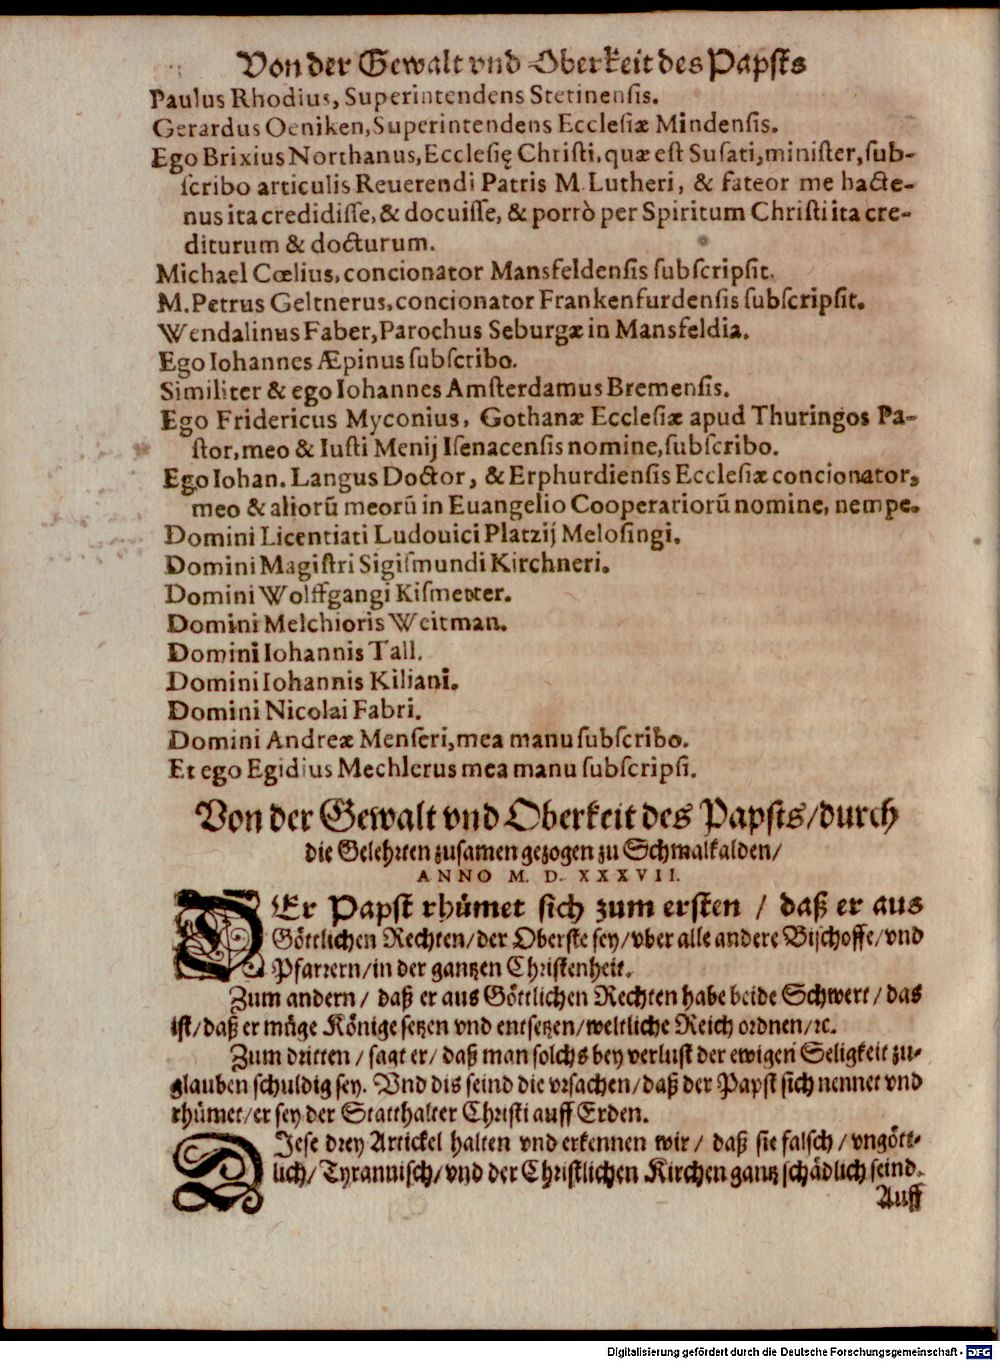 Von der Gewalt vnd Oberkeit des Papsts
Paulus Rhodius, Superintendens Stetinensis.
Gerardus Oeniken, Superintendens Ecclesiæ Mindensis.
Ego Brixius Northanus, Ecclesię Christi, quæ est Susati, minister, sub-
scribo articulis Reuerendi Patris M. Lutheri, & fateor me hacte-
nus ita credidisse, & docuisse, & porrò per Spiritum Christi ita cre-
diturum & docturum.
Michael Cœlius, concionator Mansfeldensis subscripsit.
M. Petrus Geltnerus, concionator Frankenfurdensis subscripsit.
Wendalinus Faber, Parochus Seburgæ in Mansfeldia.
Ego Iohannes Æpinus subscribo.
Similiter & ego Iohannes Amsterdamus Bremensis.
Ego Fridericus Myconius, Gothanæ Ecclesiæ apud Thuringos Pa-
stor, meo & Iusti Menij Isenacensis nomine, subscribo.
Ego Iohan. Langus Doctor, & Erphurdiensis Ecclesiæ concionator,
meo & aliorũ meorũ in Euangelio Cooperariorũ nomine, nempe.
Domini Licentiati Ludouici Platzij Melosingi.
Domini Magistri Sigismundi Kirchneri.
Domini Wolffgangi Kismeuter.
Domini Melchioris Weitman.
Domini Iohannis Tall.
Domini Iohannis Kiliani.
Domini Nicolai Fabri.
Domini Andreæ Menseri, mea manu subscribo.
Et ego Egidius Mechlerus mea manu subscripsi.
Von der Gewalt vnd Oberkeit des Papsts/durch
die Gelehrten zusamen gezogen zu Schmalkalden/
ANNO M. D. XXXVII.
DEr Papst rhümet sich zum ersten / daß er aus
Göttlichen Rechten/der Oberste sey/vber alle andere Bischoffe/vnd
Pfarrern/in der gantzen Christenheit.
Zum andern/ daß er aus Göttlichen Rechten habe beide Schwert/das
ist/daß er müge Könige setzen vnd entsetzen/weltliche Reich ordnen/ꝛc.
Zum dritten / sagt er/ daß man solchs bey verlust der ewigen Seligkeit zu-
glauben schuldig sey. Vnd dis seind die vrsachen/daß der Papst sich nennet vnd
rhümet/er sey der Statthalter Christi auff Erden.
DIese drey Artickel halten vnd erkennen wir/ daß sie falsch/vngött-
lich/ Tyrannisch/vnd der Christlichen Kirchen gantz schädlich seind.
Auff
Digitalisierung gefördert durch die Deutsche Forschungsgemeinschaft - DFG